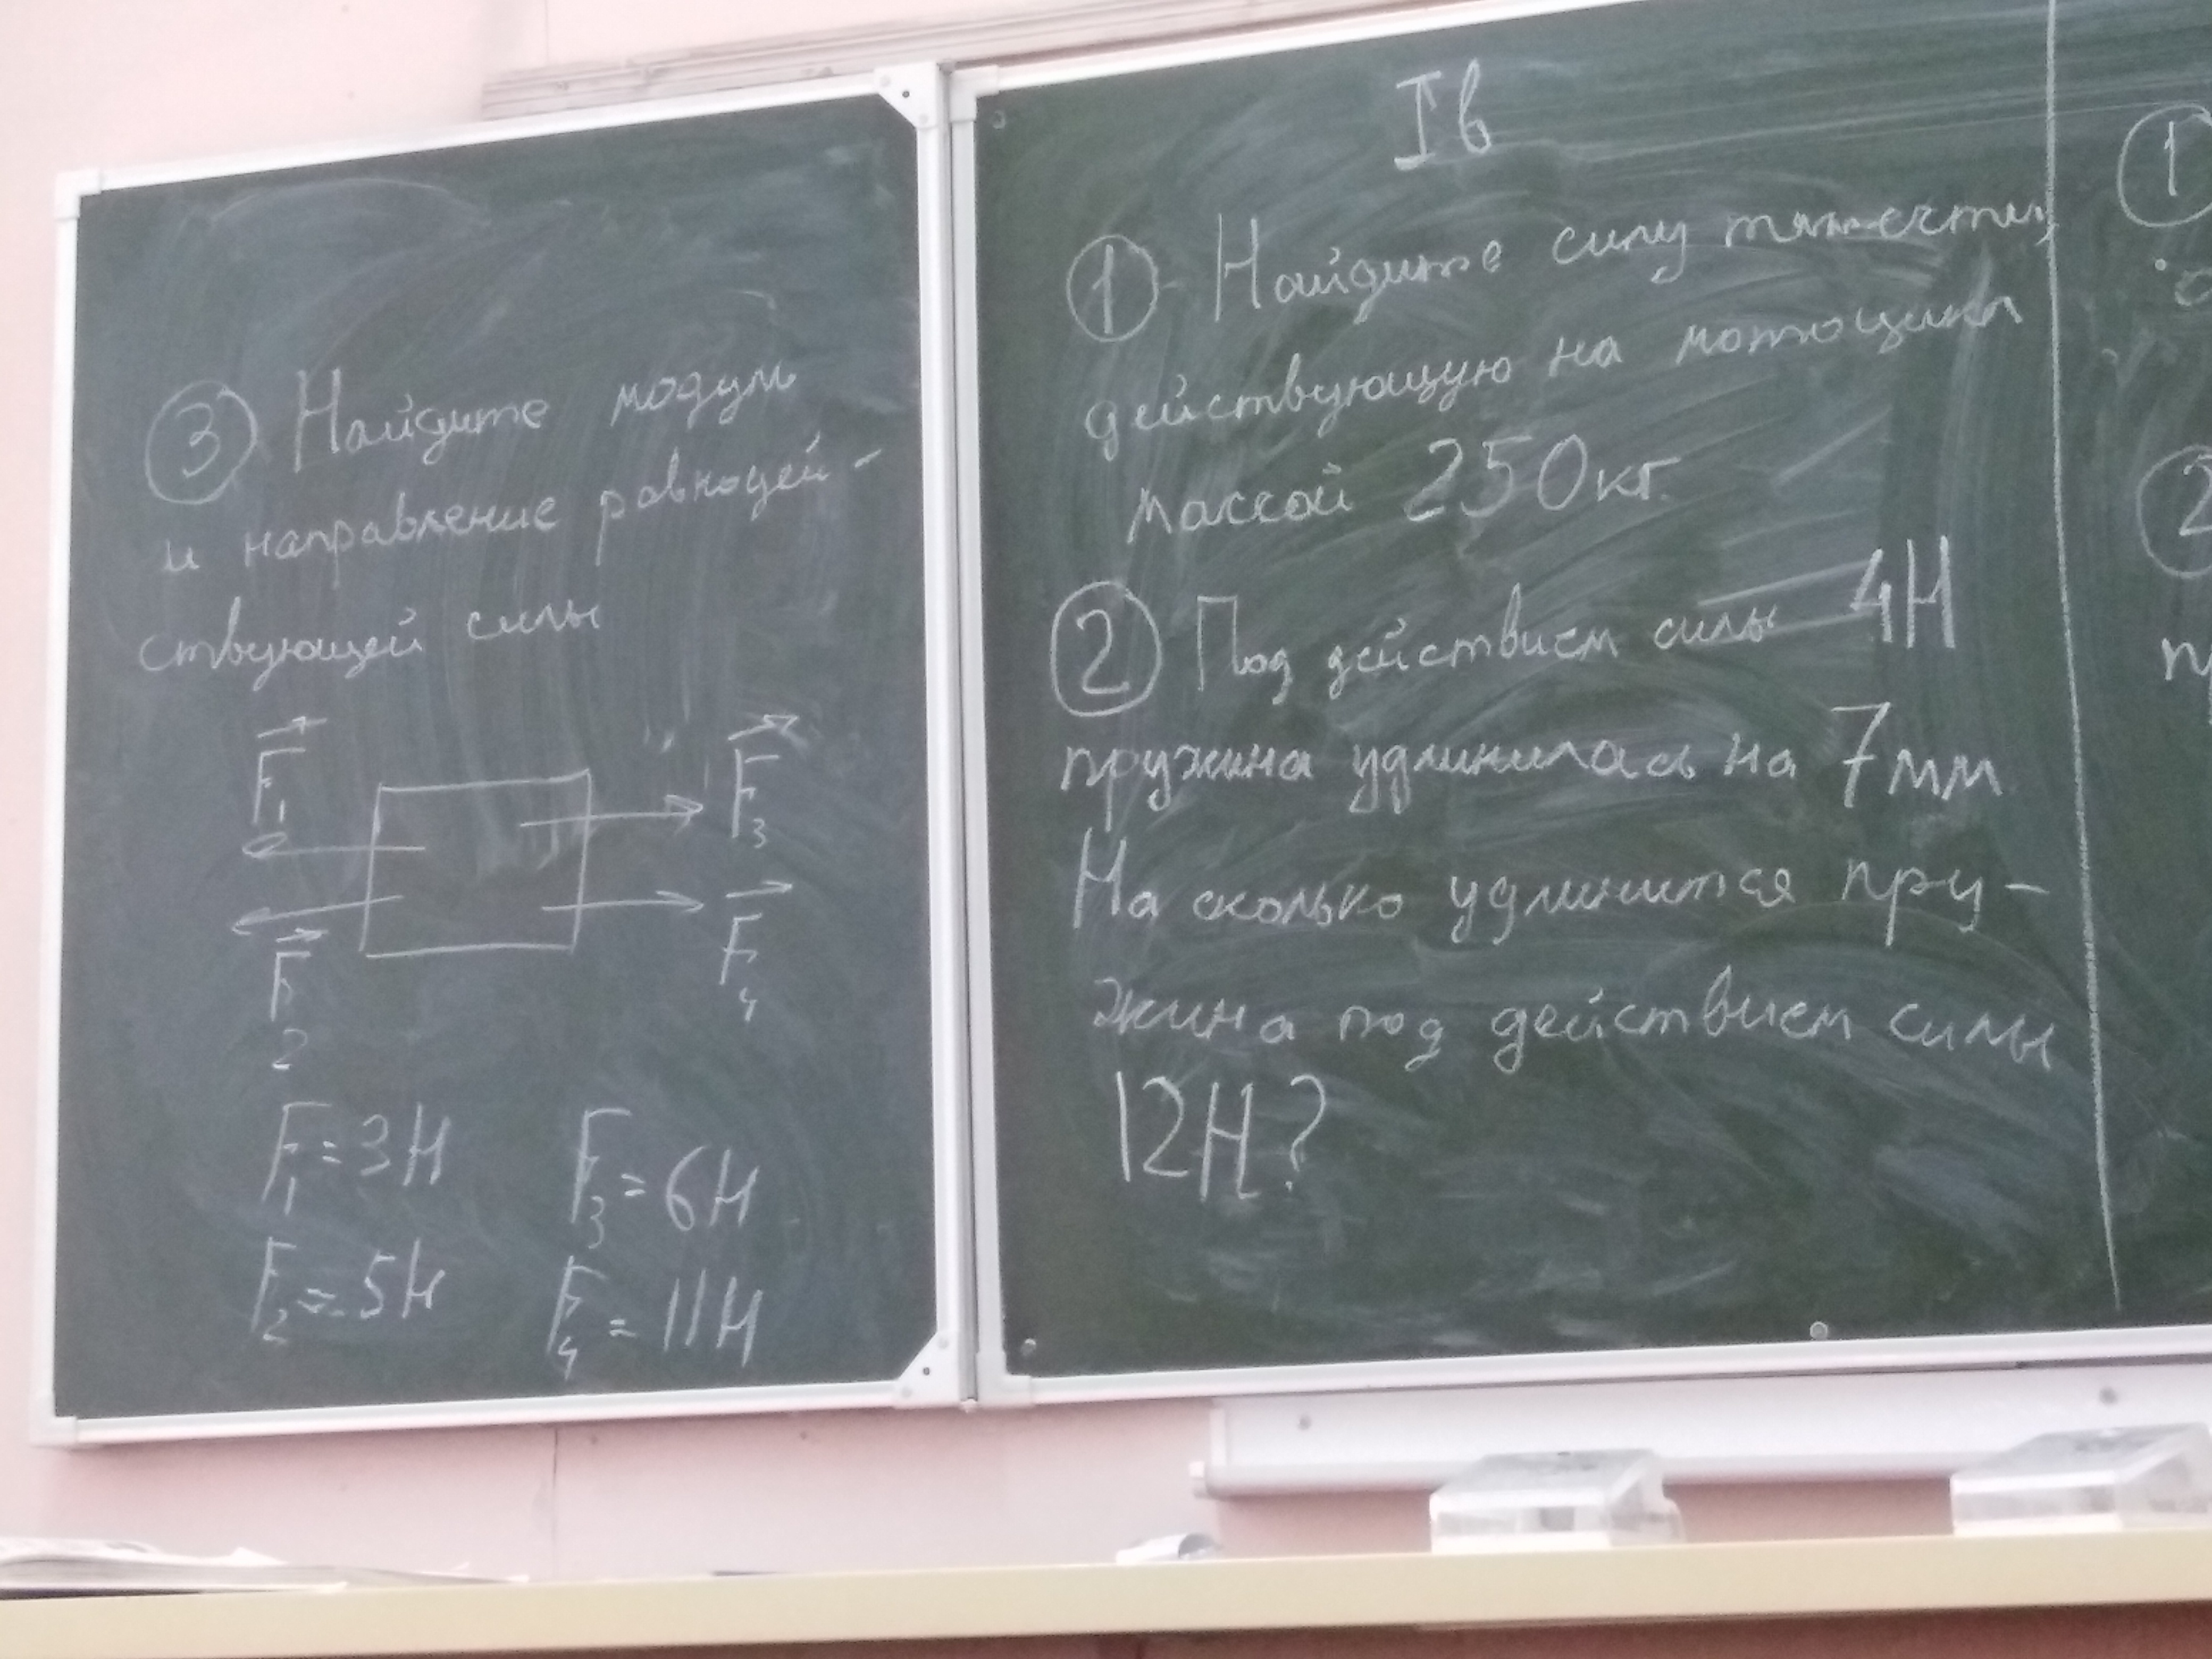 ③ Найдите модуль
и направление равнодей-
ствующей силы
F₁
F₃
F₂
F₄
F₁=3Н
F₃=6Н
F₂=5Н
F₄=11Н
Iв
① Найдите силу тяжести,
действующую на мотоцикл
массой 250 кг.
② Под действием силы 4Н
пружина удлинилась на 7мм
На сколько удлинится пру-
жина под действием силы
12Н?
①
②